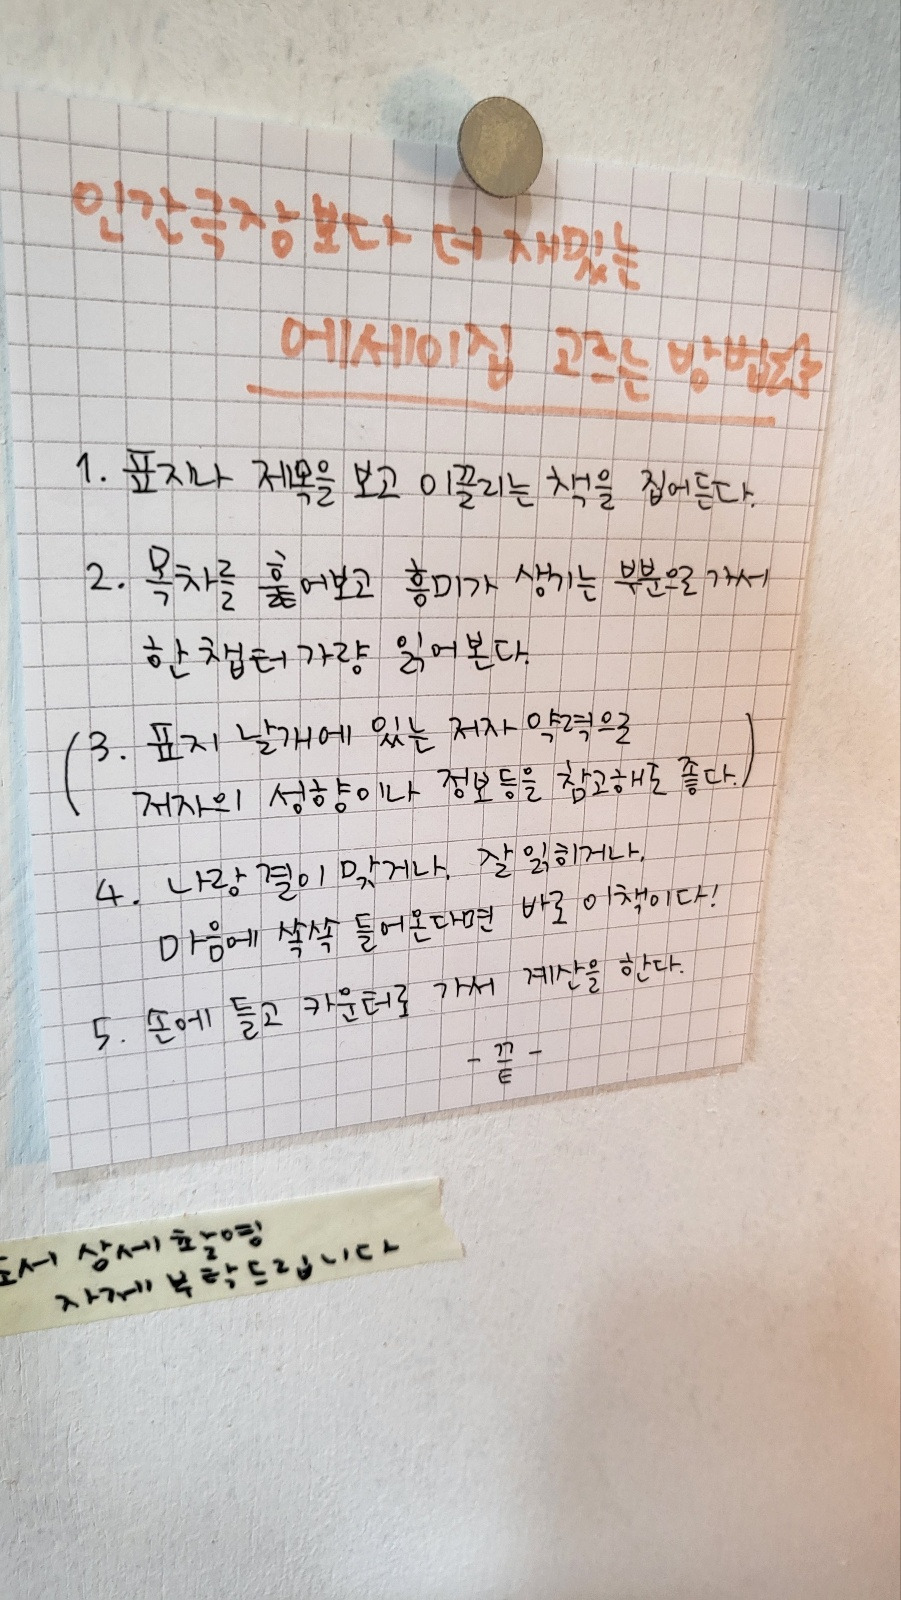 인간극장보다 더 재밌는
에세이집 고르는 방법☆
1. 표지나 제목을 보고 이끌리는 책을 집어든다.
2. 목차를 훑어보고 흥미가 생기는 부분으로 가서
한 챕터 가량 읽어본다.
(3. 표지 날개에 있는 저자 약력으로
저자의 성향이나 정보등을 참고해도 좋다.)
4. 나랑 결이 맞거나, 잘 읽히거나,
마음에 쏙쏙 들어온다면 바로 이책이다!
5. 손에 들고 카운터로 가서 계산을 한다.
- 끝 -
도서 상세 촬영
자제 부탁드립니다